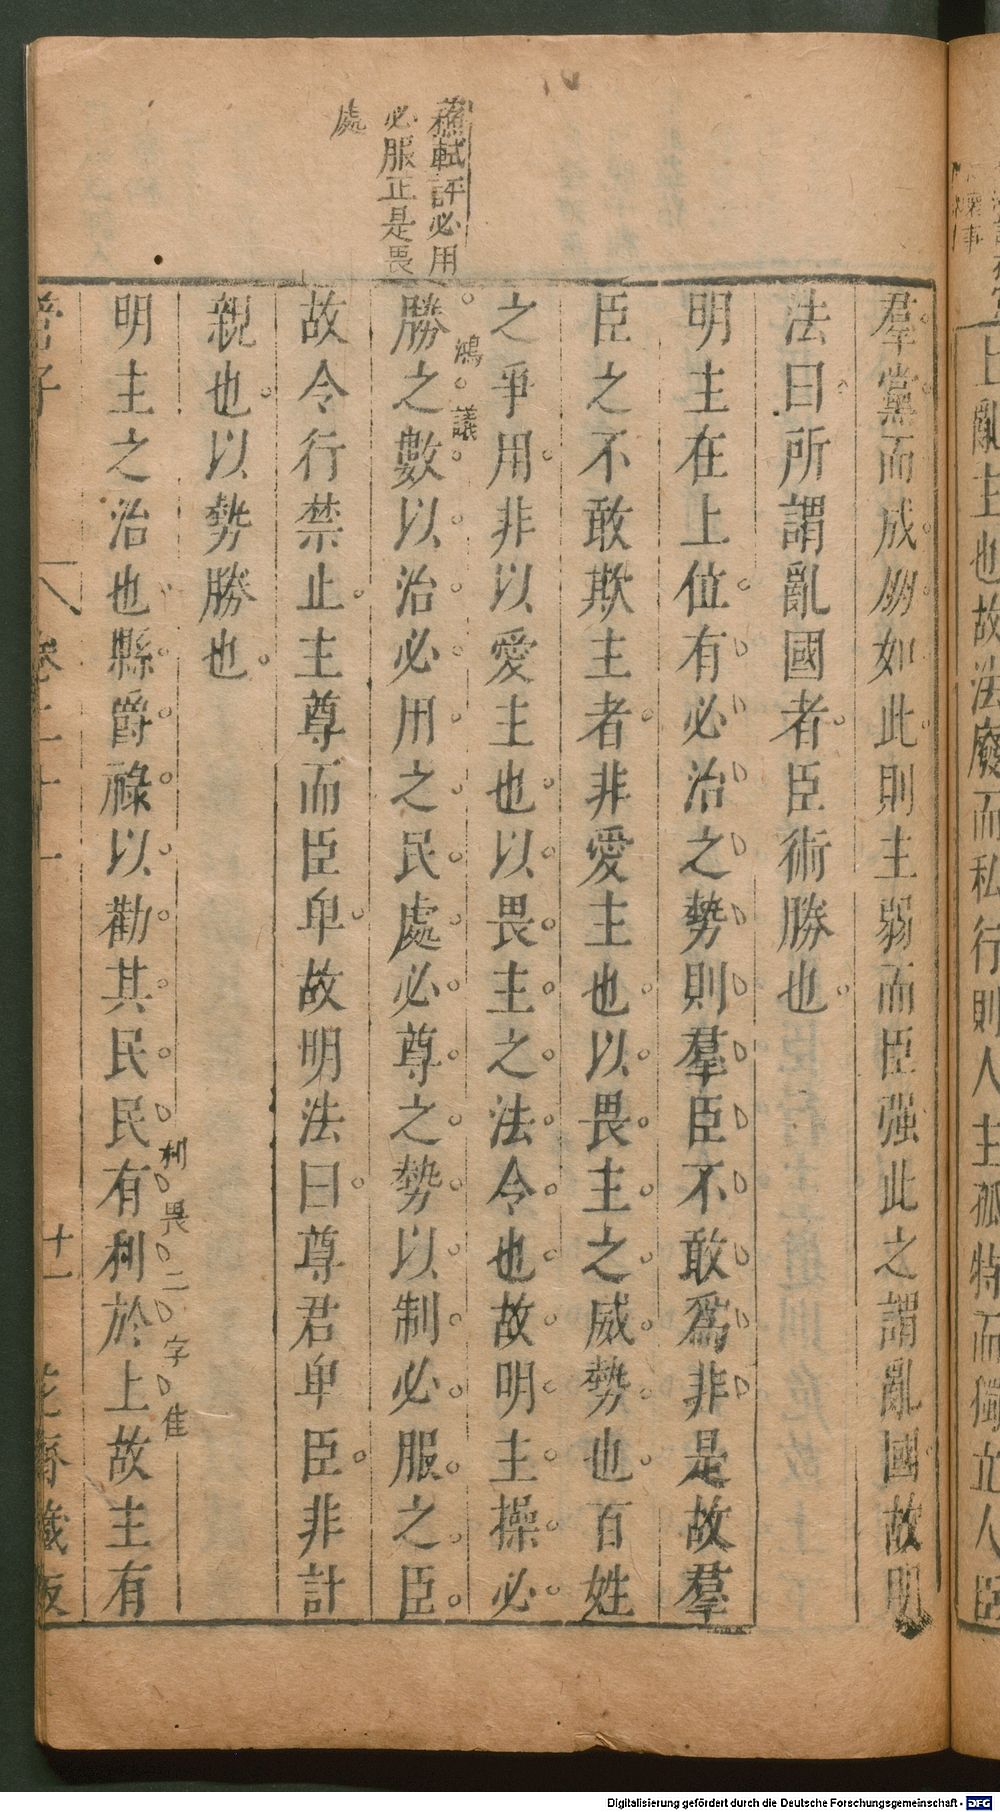 上亂主也故法廢而私行則人主孤特而獨立人臣
羣黨而成朋如此則主弱而臣强此之謂亂國故明
法曰所謂亂國者臣術勝也
明主在上位有必治之勢則羣臣不敢爲非是故羣
臣之不敢欺主者非愛主也以畏主之威勢也百姓
之爭用非以愛主也以畏主之法令也故明主操必
鴻議
蘇軾評必用
必服正是畏
處
勝之數以治必用之民處必尊之勢以制必服之臣
故令行禁止主尊而臣卑故明法曰尊君卑臣非計
親也以勢勝也
利畏二字佳
明主之治也縣爵祿以勸其民民有利於上故主有
管子
卷二十一
十一
花齋藏板
Digitalisierung gefördert durch die Deutsche Forschungsgemeinschaft - DFG